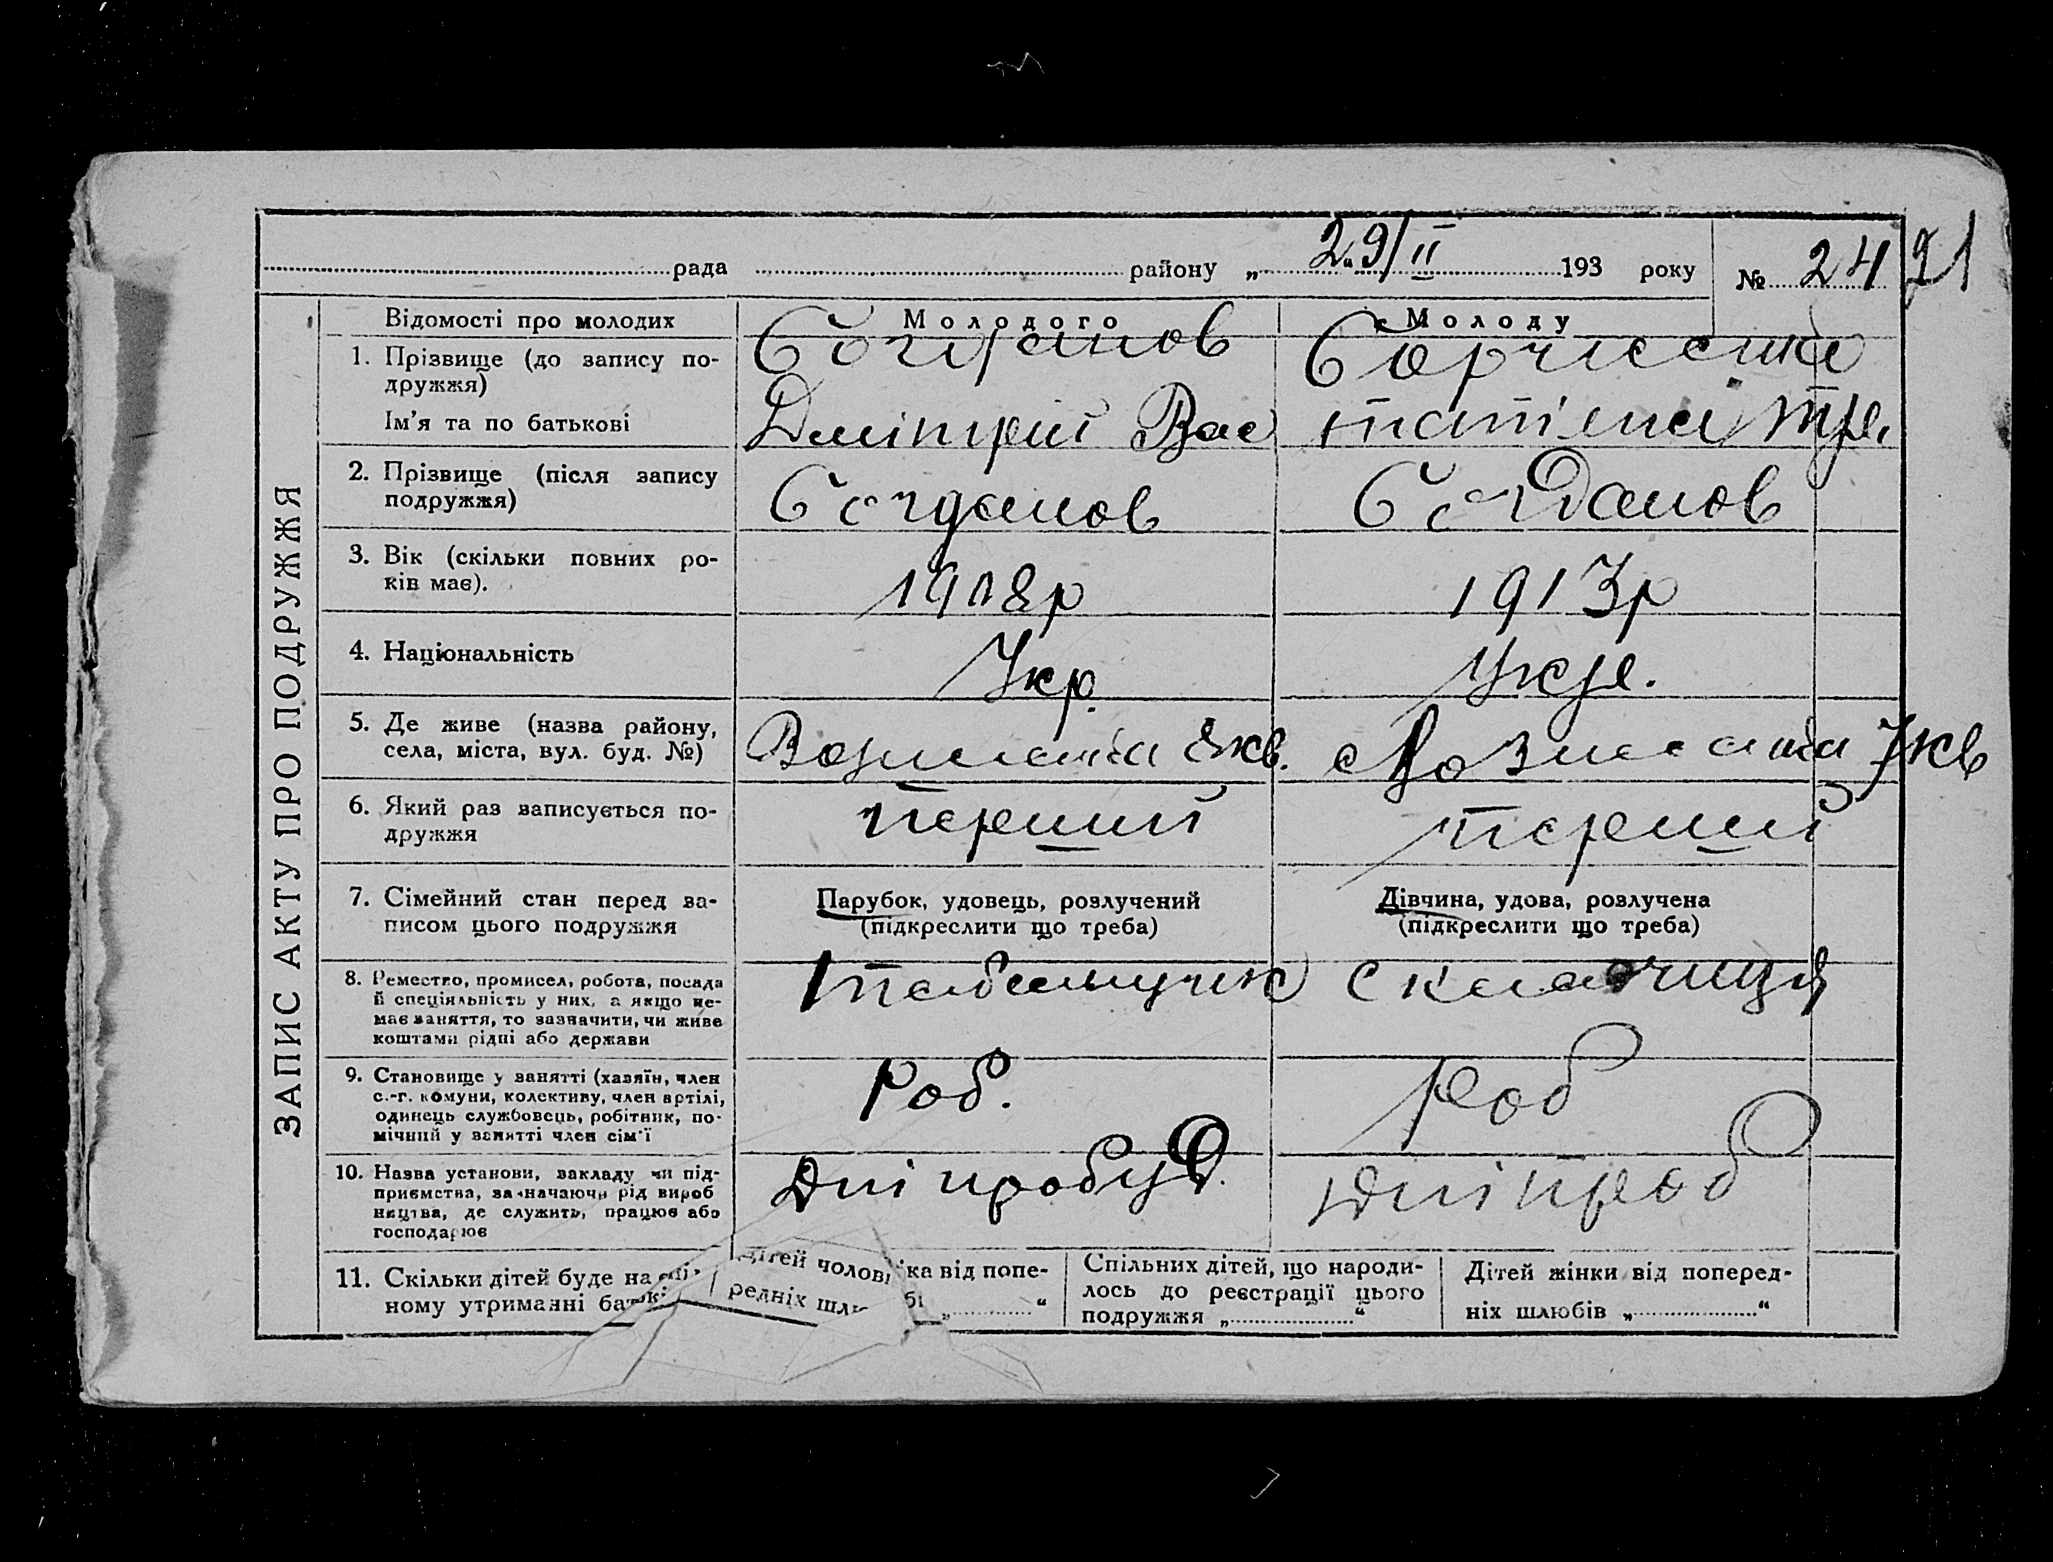 рада района „ 29/II 193 року № 24 21
ЗАПИС АКТУ ПРО ПОДРУЖЖЯ
Відомості про молодих Молодого Молоду
1. Прізвище (до запису по- Богданов
дружжя)
Ім'я та по батькові Дмітрій Вас Татіяна
2. Прізвище (після запису Богданов Богданов
подружжя)
3. Вік (скільки повних ро- 1908р 1913р
ків має).
4. Національність Укр. Укр.
5. Де живе (назва району, 8кв. 7кв
села, міста, вул. буд. №)
6. Який раз записується по- перший перший
дружжя
7. Сімейний стан перед за- Парубок, удовець, розлучений Дівчина, удова, розлучена
писом цього подружжя (підкреслити що треба) (підкреслити що треба)
8. Ремество, промисел, робота, посада табельщик
й спеціяльність у них, а якщо не-
має заняття, то зазначити, чи живе
коштами рідні або держави
9. Становище у занятті (хазяїн, член Роб. Роб
с.-г. комуни, колективу, член артілі,
одинець службовець, робітник, по-
мічний у занятті член сім'ї
10. Назва установи, закладу чи під- Дніпробуд. Дніпроб
приємства, зазначаючи рід вироб
ництва, де служить, працює або
господарює
11. Скільки дітей буде на Дітей чолові іка від попе- Спільних дітей, що народи- Дітей жінки від поперед-
ному утриманні редніх шлю бі „ “ лось до реєстрації цього ніх шлюбів „ “
подружжя „ “